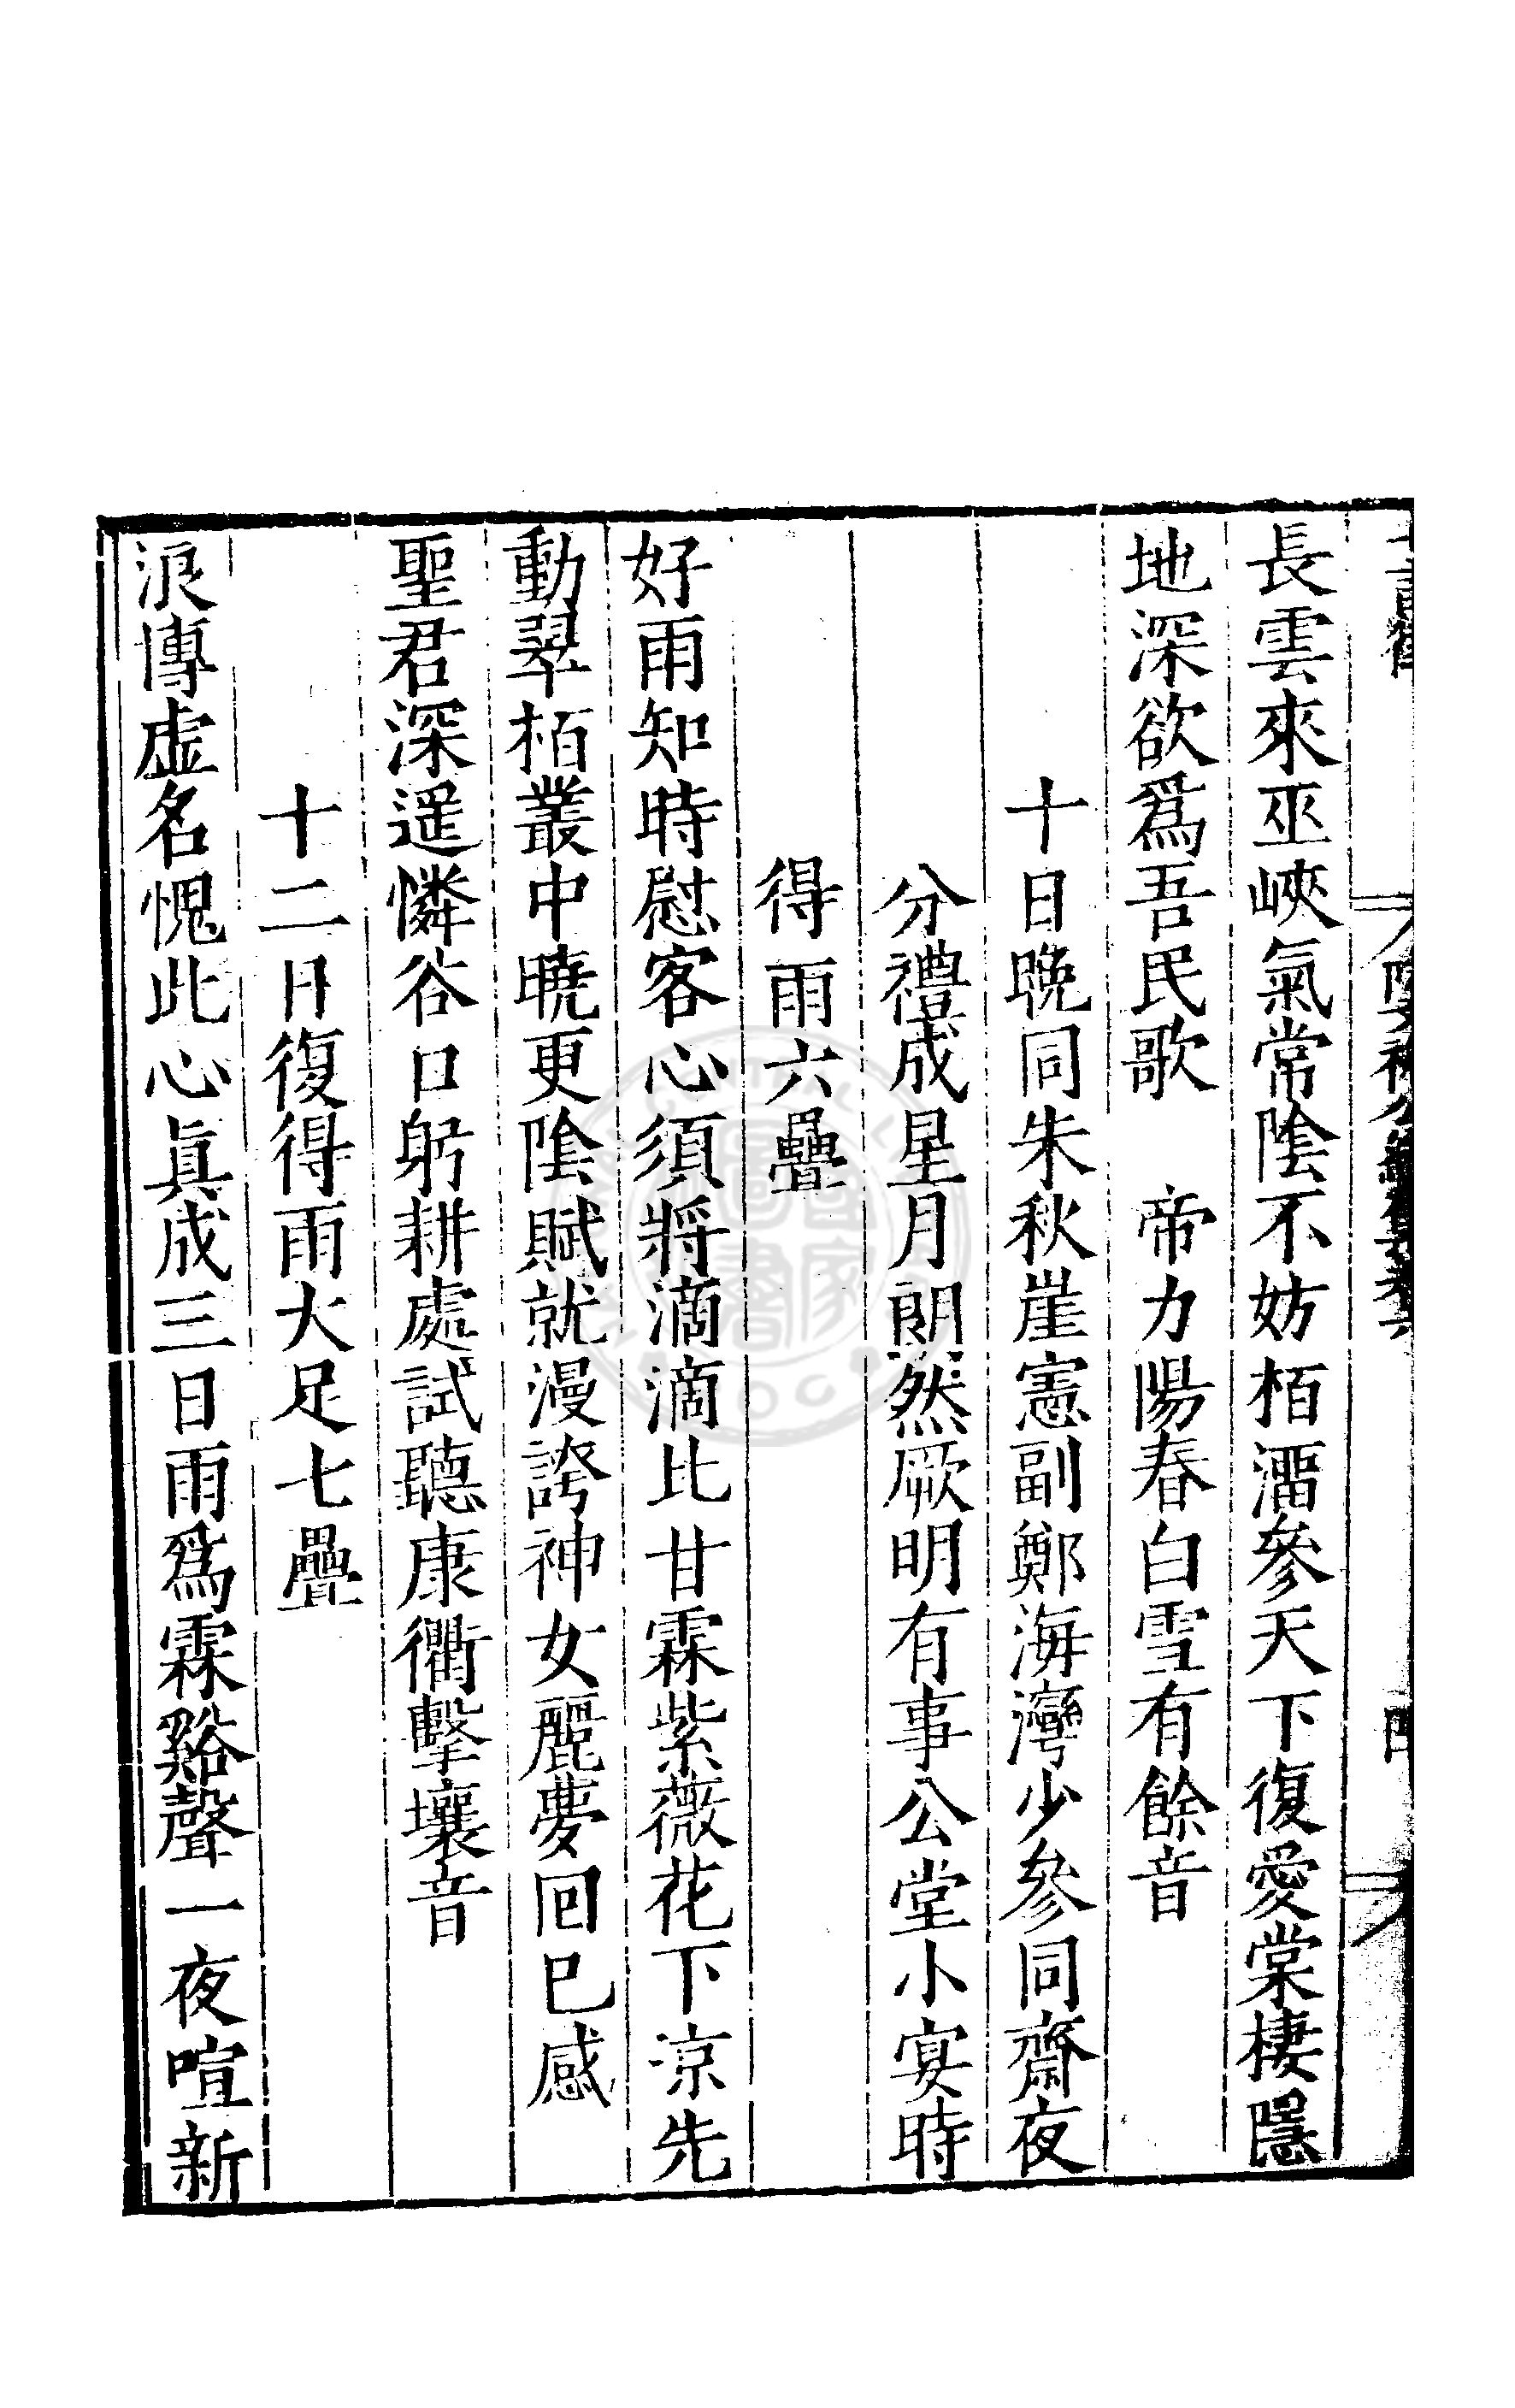 長雲來巫峽氣常陰不妨栢溜參天下復愛棠棲隱
地深欲爲吾民歌　帝力陽春白雪有餘音
十日晚同朱秋崖憲副鄭海灣少參同齋夜
分禮成星月朗然厥明有事公堂小宴時
得雨六疊
好雨知時慰客心須將滴滴比甘霖紫薇花下凉先
動翠栢叢中曉更陰賦就漫誇神女麗夢回已感
聖君深遥憐谷口躬耕處試聽康衢擊壤音
十二日復得雨大足七疊
浪傳虛名愧此心眞成三日雨爲霖谿聲一夜喧新